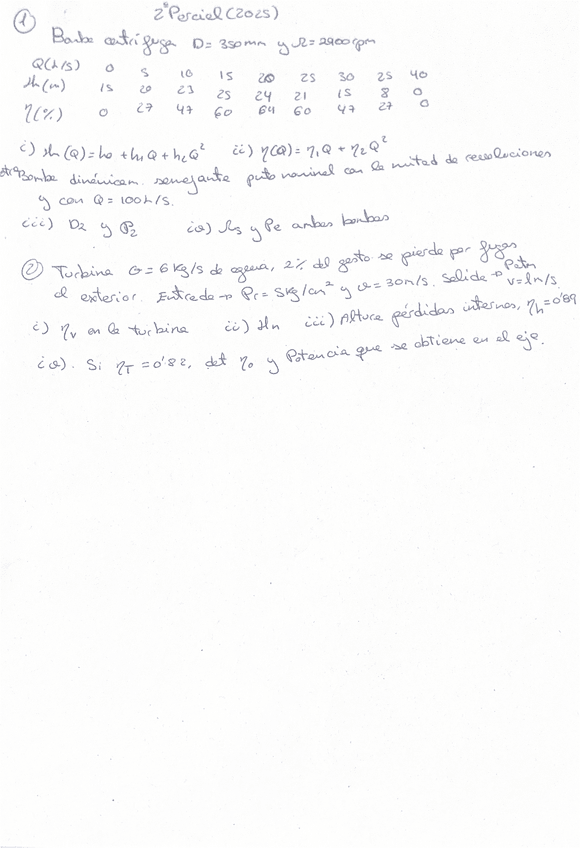 2º Parcial (2025)
① Bomba centrífuga D = 350 mm y Ω = 2900 rpm
Q(l/s) 0 5 10 15 20 25 30 25 40
H(m) 15 20 23 25 24 21 15 8 0
η(%) 0 27 47 60 64 60 47 27 0
i) H(Q) = h0 + h1Q + h2Q² ii) η(Q) = η1Q + η2Q²
otra Bomba dinámicam. semejante pto nominal con la mitad de revoluciones
y con Q = 100 l/s.
iii) D2 y P2 iv) Ωs y Pe ambas bombas
② Turbina G = 6 kg/s de agua, 2% del gasto se pierde por fugas
al exterior. Entrada → Pr = 5 kg/cm² y v = 30 m/s. Salida → Patm v = 1 m/s
i) ηv en la turbina ii) Hn iii) Altura pérdidas internas, ηh = 0'89
iv). Si ηT = 0'82, det η0 y Potencia que se obtiene en el eje.